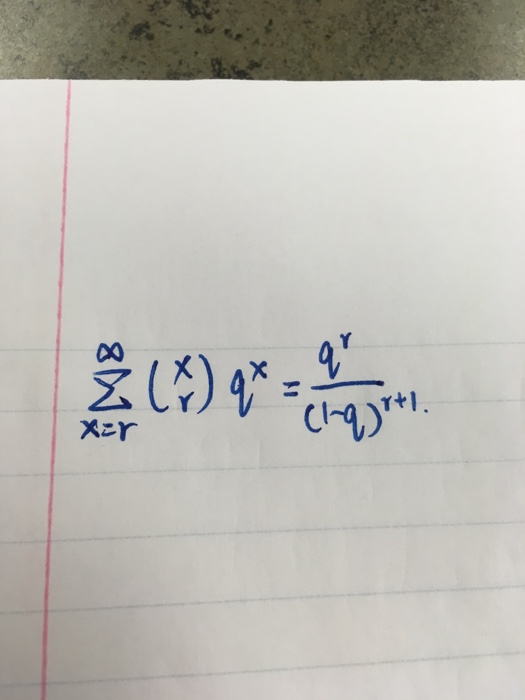 \sum_{x=r}^{\infty} \binom{x}{r} q^x = \frac{q^r}{(1-q)^{r+1}}.